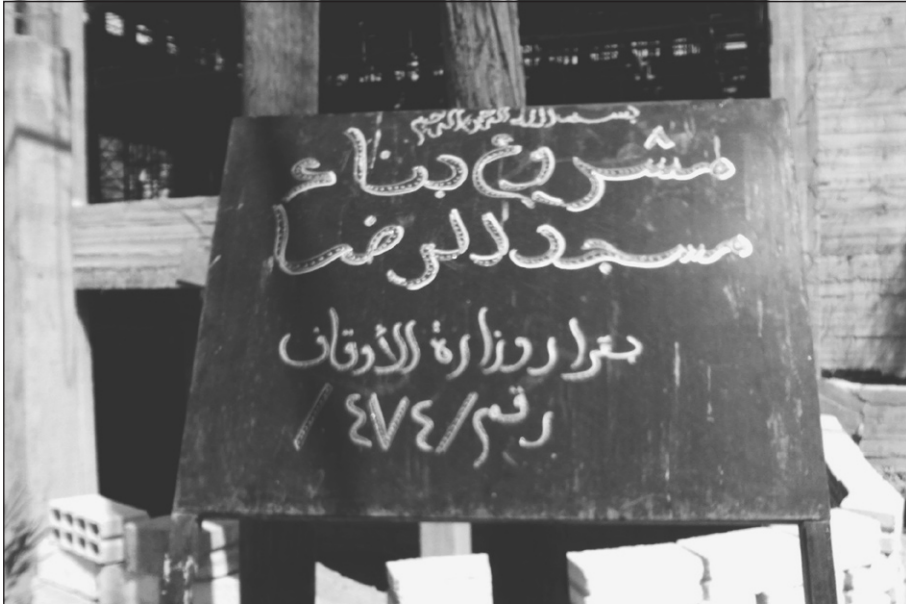 بسم الله الرحمن الرحيم
مشروع بناء
مسجد الرضا
بقرار وزارة الأوقاف
رقم /٤٧٤/